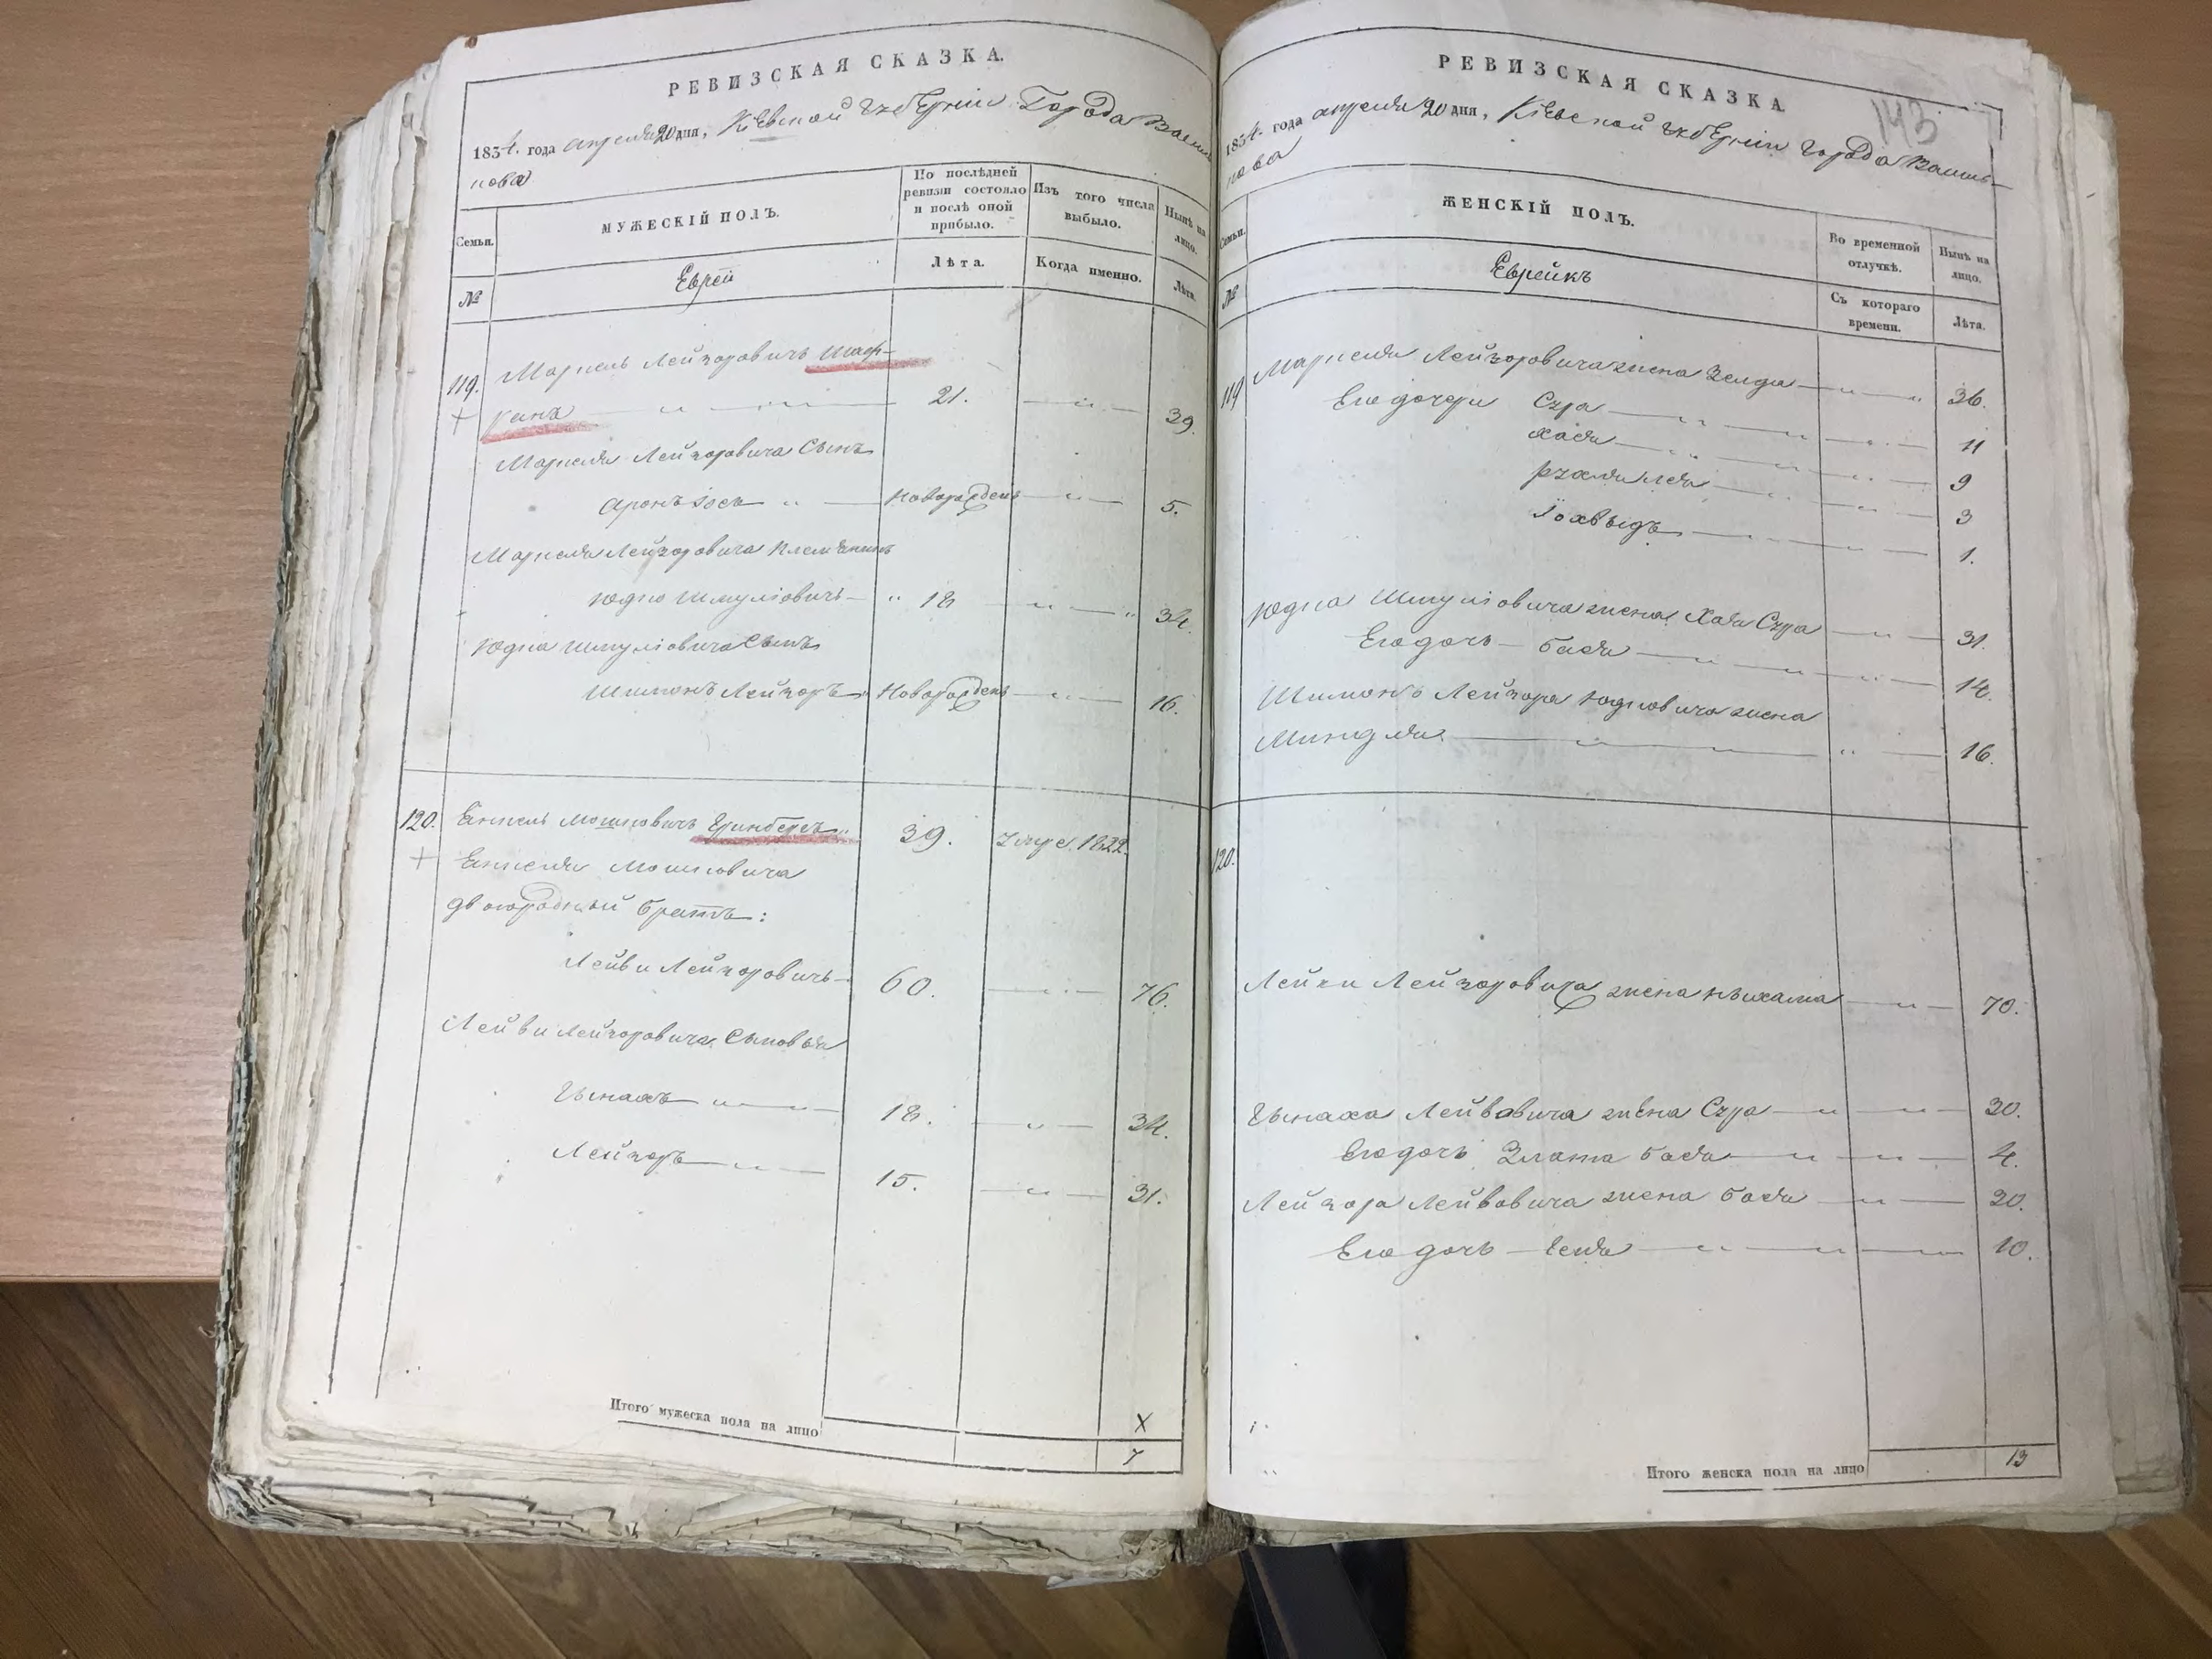 РЕВИЗСКАЯ СКАЗКА.
1834. года апреля 20 дня, Кіевской губерніи Города Василь
кова
Семьи.
МУЖЕСКІЙ ПОЛЪ.
По послѣдней ревизіи состояло и послѣ оной прибыло.
Изъ того числа выбыло.
Нынѣ на лицо.
№
Еврей
Лѣта.
Когда именно.
Лѣта.
119. Маркель Лейзоровичъ
21. 39.
Маркеля Лейзоровича Сынъ
Аронъ Іось новорожденъ 5.
Маркеля Лейзоровича племянникъ
Юдко Шмуліовичъ 18 34.
Юдка Шмуліовича Сынъ
Шимонъ Лейзоръ Новорожденъ 16.
120. Янкель Мошковичъ Гринбергъ 39. Умре. 1822.
Янкеля Мошковича
двоюродный братъ:
Лейви Лейзоровичъ 60. 76.
Лейви Лейзоровича Сыновья
Гынахъ 18. 34.
Лейзоръ 15. 31.
Итого мужеска пола на лицо
Х
7
РЕВИЗСКАЯ СКАЗКА.
143
1834. года апреля 20 дня, Кіевской губерніи города Василь-
кова
Семьи.
ЖЕНСКІЙ ПОЛЪ.
Во временной отлучкѣ.
Нынѣ на лицо.
№
Еврейкъ
Съ котораго времени.
Лѣта.
119 Маркеля Лейзоровича жена Зелда 36.
Его дочери Сура 11
Хая 9
Рухля Лея 3
Іохвыдъ 1.
Юдка Шмуліовича жена Хая Сура 31.
Его дочь Бася 14.
Шимона Лейзора Юдковича жена
Миндля 16.
120.
Лейви Лейзоровича жена Ныхама 70.
Гынаха Лейвовича жена Сура 30.
Его дочь Злата Бася 4.
Лейзора Лейвовича жена Бася 30.
Его дочь 10.
Итого женска пола на лицо
13